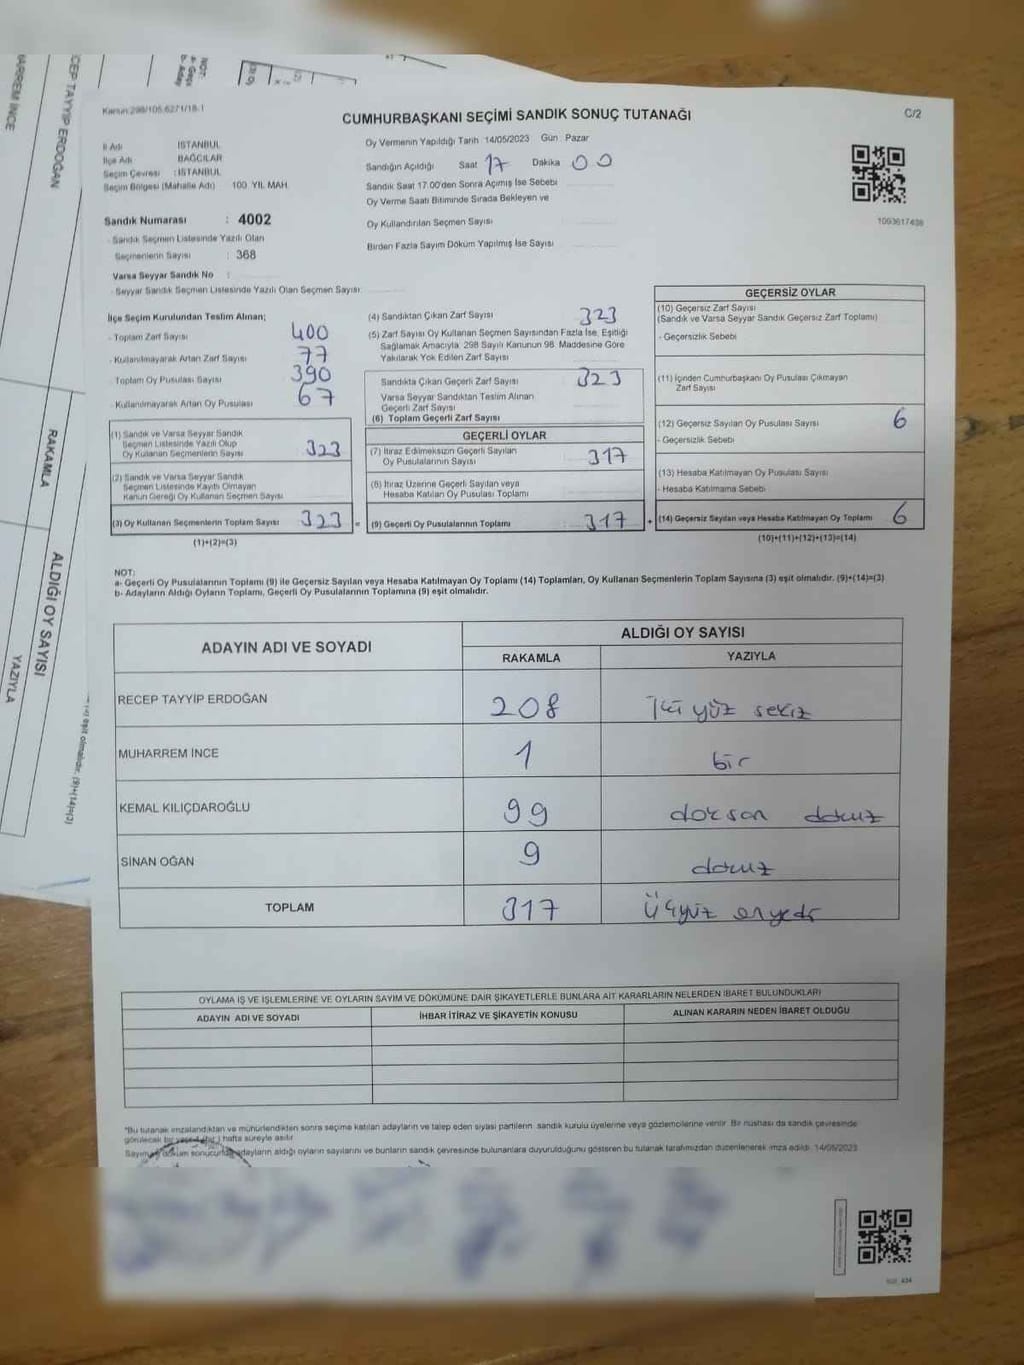 Kanun:298/105,6271/18-1
CUMHURBAŞKANI SEÇİMİ SANDIK SONUÇ TUTANAĞI
C/2
İl Adı İSTANBUL
İlçe Adı BAĞCILAR
Seçim Çevresi : İSTANBUL
Seçim Bölgesi (Mahalle Adı) 100. YIL MAH.
Oy Vermenin Yapıldığı Tarih 14/05/2023 Gün Pazar
Sandığın Açıldığı Saat 17 Dakika 00
Sandık Saat 17.00'den Sonra Açımış İse Sebebi
Oy Verme Saati Bitiminde Sırada Bekleyen ve
Oy Kullandırılan Seçmen Sayısı
Birden Fazla Sayım Döküm Yapılmış İse Sayısı
1093617438
Sandık Numarası : 4002
- Sandık Seçmen Listesinde Yazılı Olan
Seçmenlerin Sayısı : 368
Varsa Seyyar Sandık No :
- Seyyar Sandık Seçmen Listesinde Yazılı Olan Seçmen Sayısı:
İlçe Seçim Kurulundan Teslim Alınan;
- Toplam Zarf Sayısı 400
- Kullanılmayarak Artan Zarf Sayısı 77
Toplam Oy Pusulası Sayısı 390
- Kullanılmayarak Artan Oy Pusulası 67
(1) Sandık ve Varsa Seyyar Sandık
Seçmen Listesinde Yazılı Olup
Oy Kullanan Seçmenlerin Sayısı 323
(2) Sandık ve Varsa Seyyar Sandık
Seçmen Listesinde Kayıtlı Olmayan
Kanun Gereği Oy Kullanan Seçmen Sayısı
(3) Oy Kullanan Seçmenlerin Toplam Sayısı 323 =
(1)+(2)=(3)
(4) Sandıktan Çıkan Zarf Sayısı 323
(5) Zarf Sayısı Oy Kullanan Seçmen Sayısından Fazla İse, Eşitliği
Sağlamak Amacıyla, 298 Sayılı Kanunun 98. Maddesine Göre
Yakılarak Yok Edilen Zarf Sayısı
Sandıkta Çıkan Geçerli Zarf Sayısı 323
Varsa Seyyar Sandıktan Teslim Alınan
Geçerli Zarf Sayısı
(6) Toplam Geçerli Zarf Sayısı
GEÇERLİ OYLAR
(7) İtiraz Edilmeksizin Geçerli Sayılan
Oy Pusulalarının Sayısı 317
(8) İtiraz Üzerine Geçerli Sayılan veya
Hesaba Katılan Oy Pusulası Toplamı
(9) Geçerli Oy Pusulalarının Toplamı : 317 +
GEÇERSİZ OYLAR
(10) Geçersiz Zarf Sayısı
(Sandık ve Varsa Seyyar Sandık Geçersiz Zarf Toplamı)
- Geçersizlik Sebebi
(11) İçinden Cumhurbaşkanı Oy Pusulası Çıkmayan
Zarf Sayısı
(12) Geçersiz Sayılan Oy Pusulası Sayısı 6
- Geçersizlik Sebebi
(13) Hesaba Katılmayan Oy Pusulası Sayısı
- Hesaba Katılmama Sebebi
(14) Geçersiz Sayılan veya Hesaba Katılmayan Oy Toplamı 6
(10)+(11)+(12)+(13)=(14)
NOT:
a- Geçerli Oy Pusulalarının Toplamı (9) ile Geçersiz Sayılan veya Hesaba Katılmayan Oy Toplamı (14) Toplamları, Oy Kullanan Seçmenlerin Toplam Sayısına (3) eşit olmalıdır. (9)+(14)=(3)
b- Adayların Aldığı Oyların Toplamı, Geçerli Oy Pusulalarının Toplamına (9) eşit olmalıdır.
ADAYIN ADI VE SOYADI
ALDIĞI OY SAYISI
RAKAMLA YAZIYLA
RECEP TAYYİP ERDOĞAN 208 iki yüz sekiz
MUHARREM İNCE 1 bir
KEMAL KILIÇDAROĞLU 99 doksan dokuz
SİNAN OĞAN 9 dokuz
TOPLAM 317 Üçyüz onyedi
OYLAMA İŞ VE İŞLEMLERİNE VE OYLARIN SAYIM VE DÖKÜMÜNE DAİR ŞİKAYETLERLE BUNLARA AİT KARARLARIN NELERDEN İBARET BULUNDUKLARI
ADAYIN ADI VE SOYADI İHBAR İTİRAZ VE ŞİKAYETİN KONUSU ALINAN KARARIN NEDEN İBARET OLDUĞU
*Bu tutanak imzalandıktan ve mühürlendikten sonra seçime katılan adayların ve talep eden siyasi partilerin sandık kurulu üyelerine veya gözlemcilerine verilir. Bir nüshası da sandık çevresinde
görülecek bir yere 1 (bir) hafta süreyle asılır.
Sayım ve döküm sonucunda adayların aldığı oyların sayılarını ve bunların sandık çevresinde bulunanlara duyurulduğunu gösteren bu tutanak tarafımızdan düzenlenerek imza edildi. 14/05/2023
CEP TAYYİP ERDOĞAN
ARREM İNCE
RAKAMLA
ALDIĞI OY SAYISI
YAZIYLA
NOT:
a- Geçe
b- Aday
eşit olmalıdır. (9)+(14)=(3)